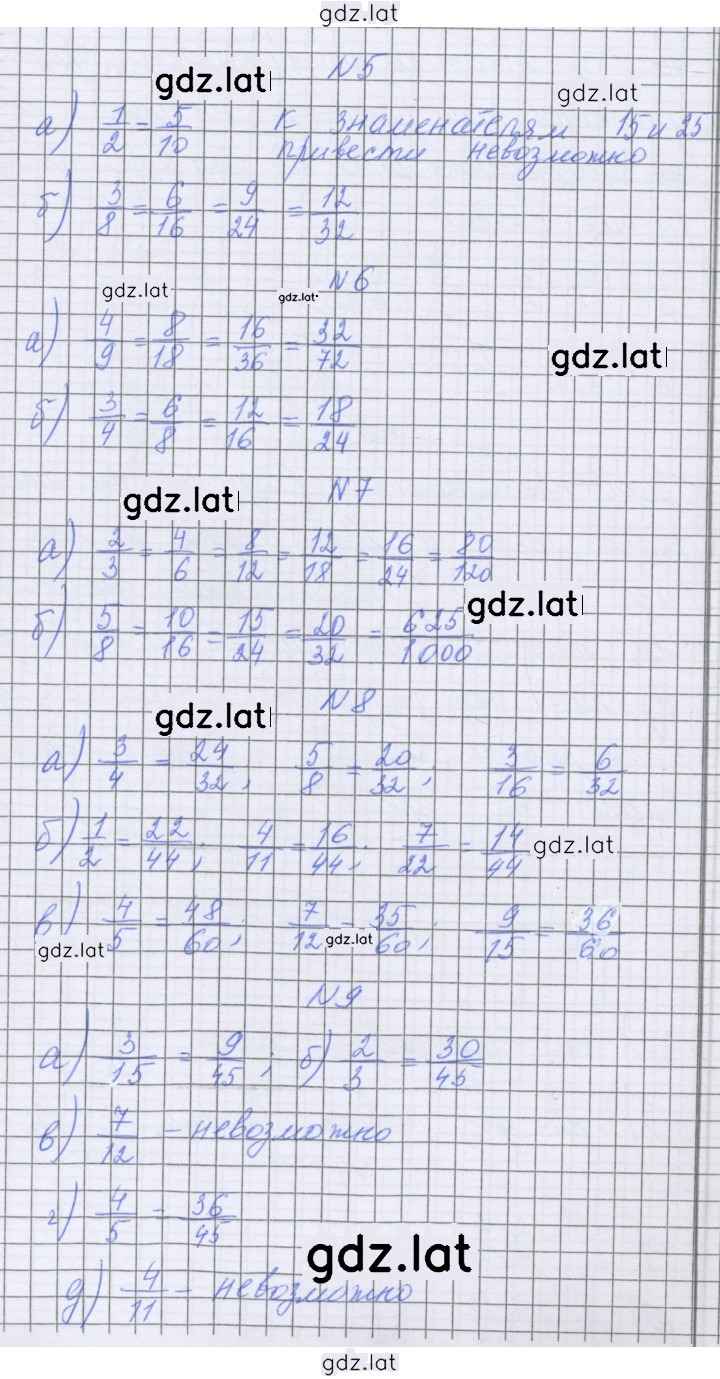 gdz.lat
N5
gdz.lat
gdz.lat
а) 1/2 = 5/10 К знаменателям 15 и 25
привести невозможно
б) 3/8 = 6/16 = 9/24 = 12/32
N6
gdz.lat
gdz.lat
а) 4/9 = 8/18 = 16/36 = 32/72
gdz.lat
б) 3/4 = 6/8 = 12/16 = 18/24
N7
gdz.lat
а) 2/3 = 4/6 = 8/12 = 12/18 = 16/24 = 80/120
gdz.lat
б) 5/8 = 10/16 = 15/24 = 20/32 = 625/1000
N8
gdz.lat
а) 3/4 = 24/32; 5/8 = 20/32; 3/16 = 6/32
б) 1/2 = 22/44; 4/11 = 16/44; 7/22 = 14/44
gdz.lat
в) 4/5 = 48/60; 7/12 = 35/60; 9/15 = 36/60
gdz.lat
gdz.lat
N9
а) 3/15 = 9/45; б) 2/3 = 30/45
в) 7/12 - невозможно
г) 4/5 = 36/45
gdz.lat
д) 4/11 - невозможно
gdz.lat